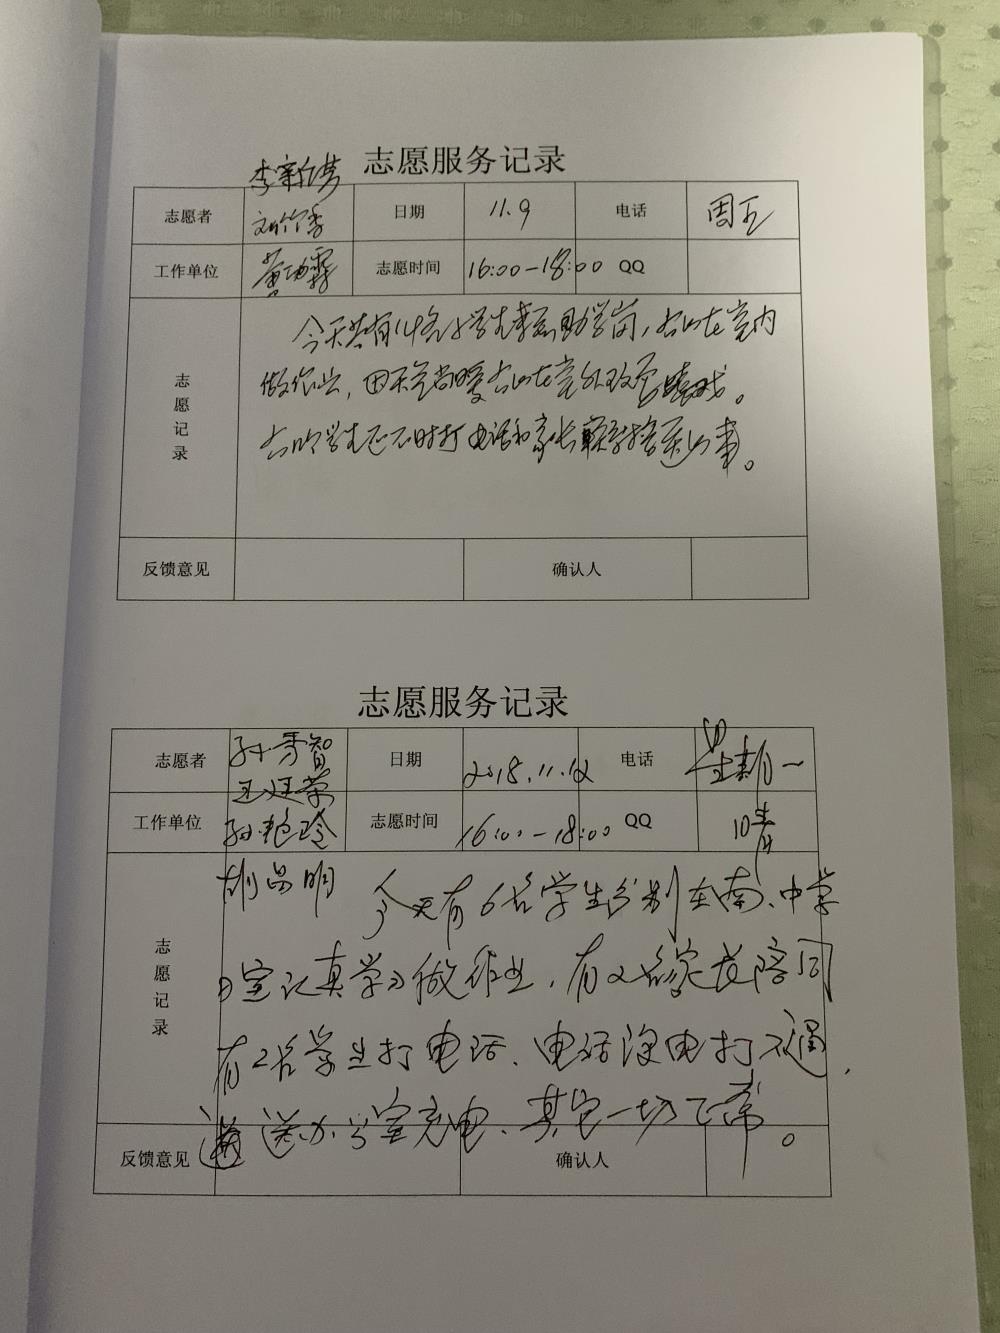 志愿服务记录
志愿者 日期 11.9 电话 周五
工作单位 志愿时间 16:00-18:00 QQ
志愿记录
今天共有14名小学生来到助学岗,有的在室内
做作业,因天气尚暖有的在室外
有的学生还不时打电话和家长事。
反馈意见 确认人
志愿服务记录
志愿者 孙秀智 日期 2018.11.12 电话 星期一
王廷荣
工作单位 孙艳玲 志愿时间 16:00-18:00 QQ 10
胡昌明
志愿记录
今天有6名学生分别在南、中学
习室认真学习做作业,有2名家长陪同
有2名学生打电话、电话没电打不通,
送办公室充电、其它一切正常。
反馈意见 确认人